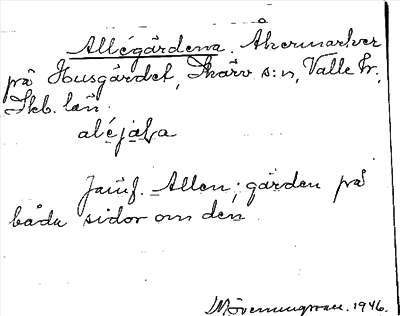 Allégärdena. Åkermarker
på Husgärdet, Skärv s:n, Valle hr,
Skb. län.
aléjáɫa
Jämf. Allen; gärden på
båda sidor om den.
1946.